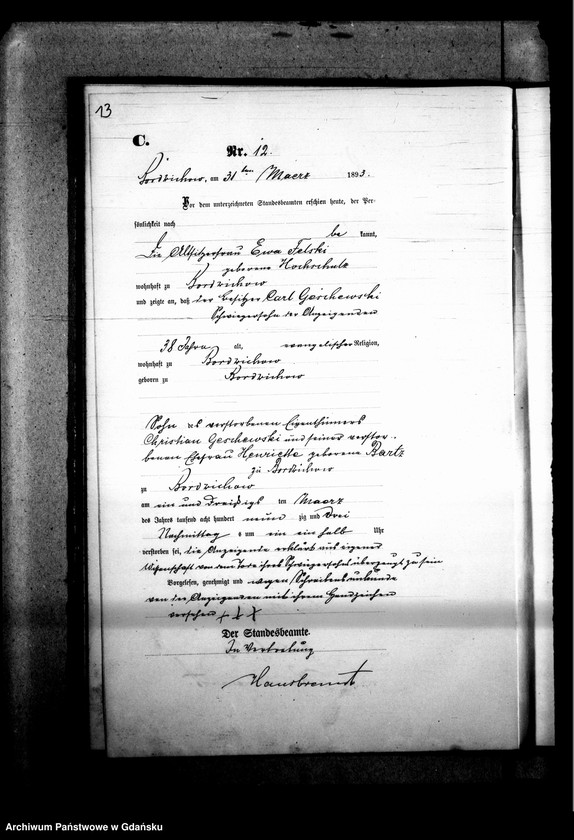 13
C.
Nr. 12.
Bordzichow, am 31 ten Maerz 1893.
Vor dem unterzeichneten Standesbeamten erschien heute, der Per-
sönlichkeit nach
be kannt,
die Altsitzerfrau Ewa Felski
geborene Hochschulz
wohnhaft zu Bordzichow
und zeigte an, daß der Besitzer Carl Geschewski
Schwiegersohn der Anzeigenden
38 Jahre alt, evangelischer Religion,
wohnhaft zu Bordzichow
geboren zu Bordzichow
Sohn des verstorbenen Eigenthümers
Christian Geschewski und seiner verstor-
benen Ehefrau Henriette geborene Bartz
zu Bordzichow
zu Bordzichow
am ein und dreißigs ten Maerz
des Jahres tausend acht hundert neun zig und drei
Nachmittag s um ein ein halb Uhr
verstorben sei, die Anzeigende erklärt aus eigener
Wissenschaft von dem Tode ihres Schwiegersohns überzeugt zu sein
Vorgelesen, genehmigt und wegen Schreibensunkunde
von der Anzeigenden mit ihrem Handzeichen
versehen + + +
Der Standesbeamte.
In Vertretung
Hausbrandt
Archiwum Państwowe w Gdańsku